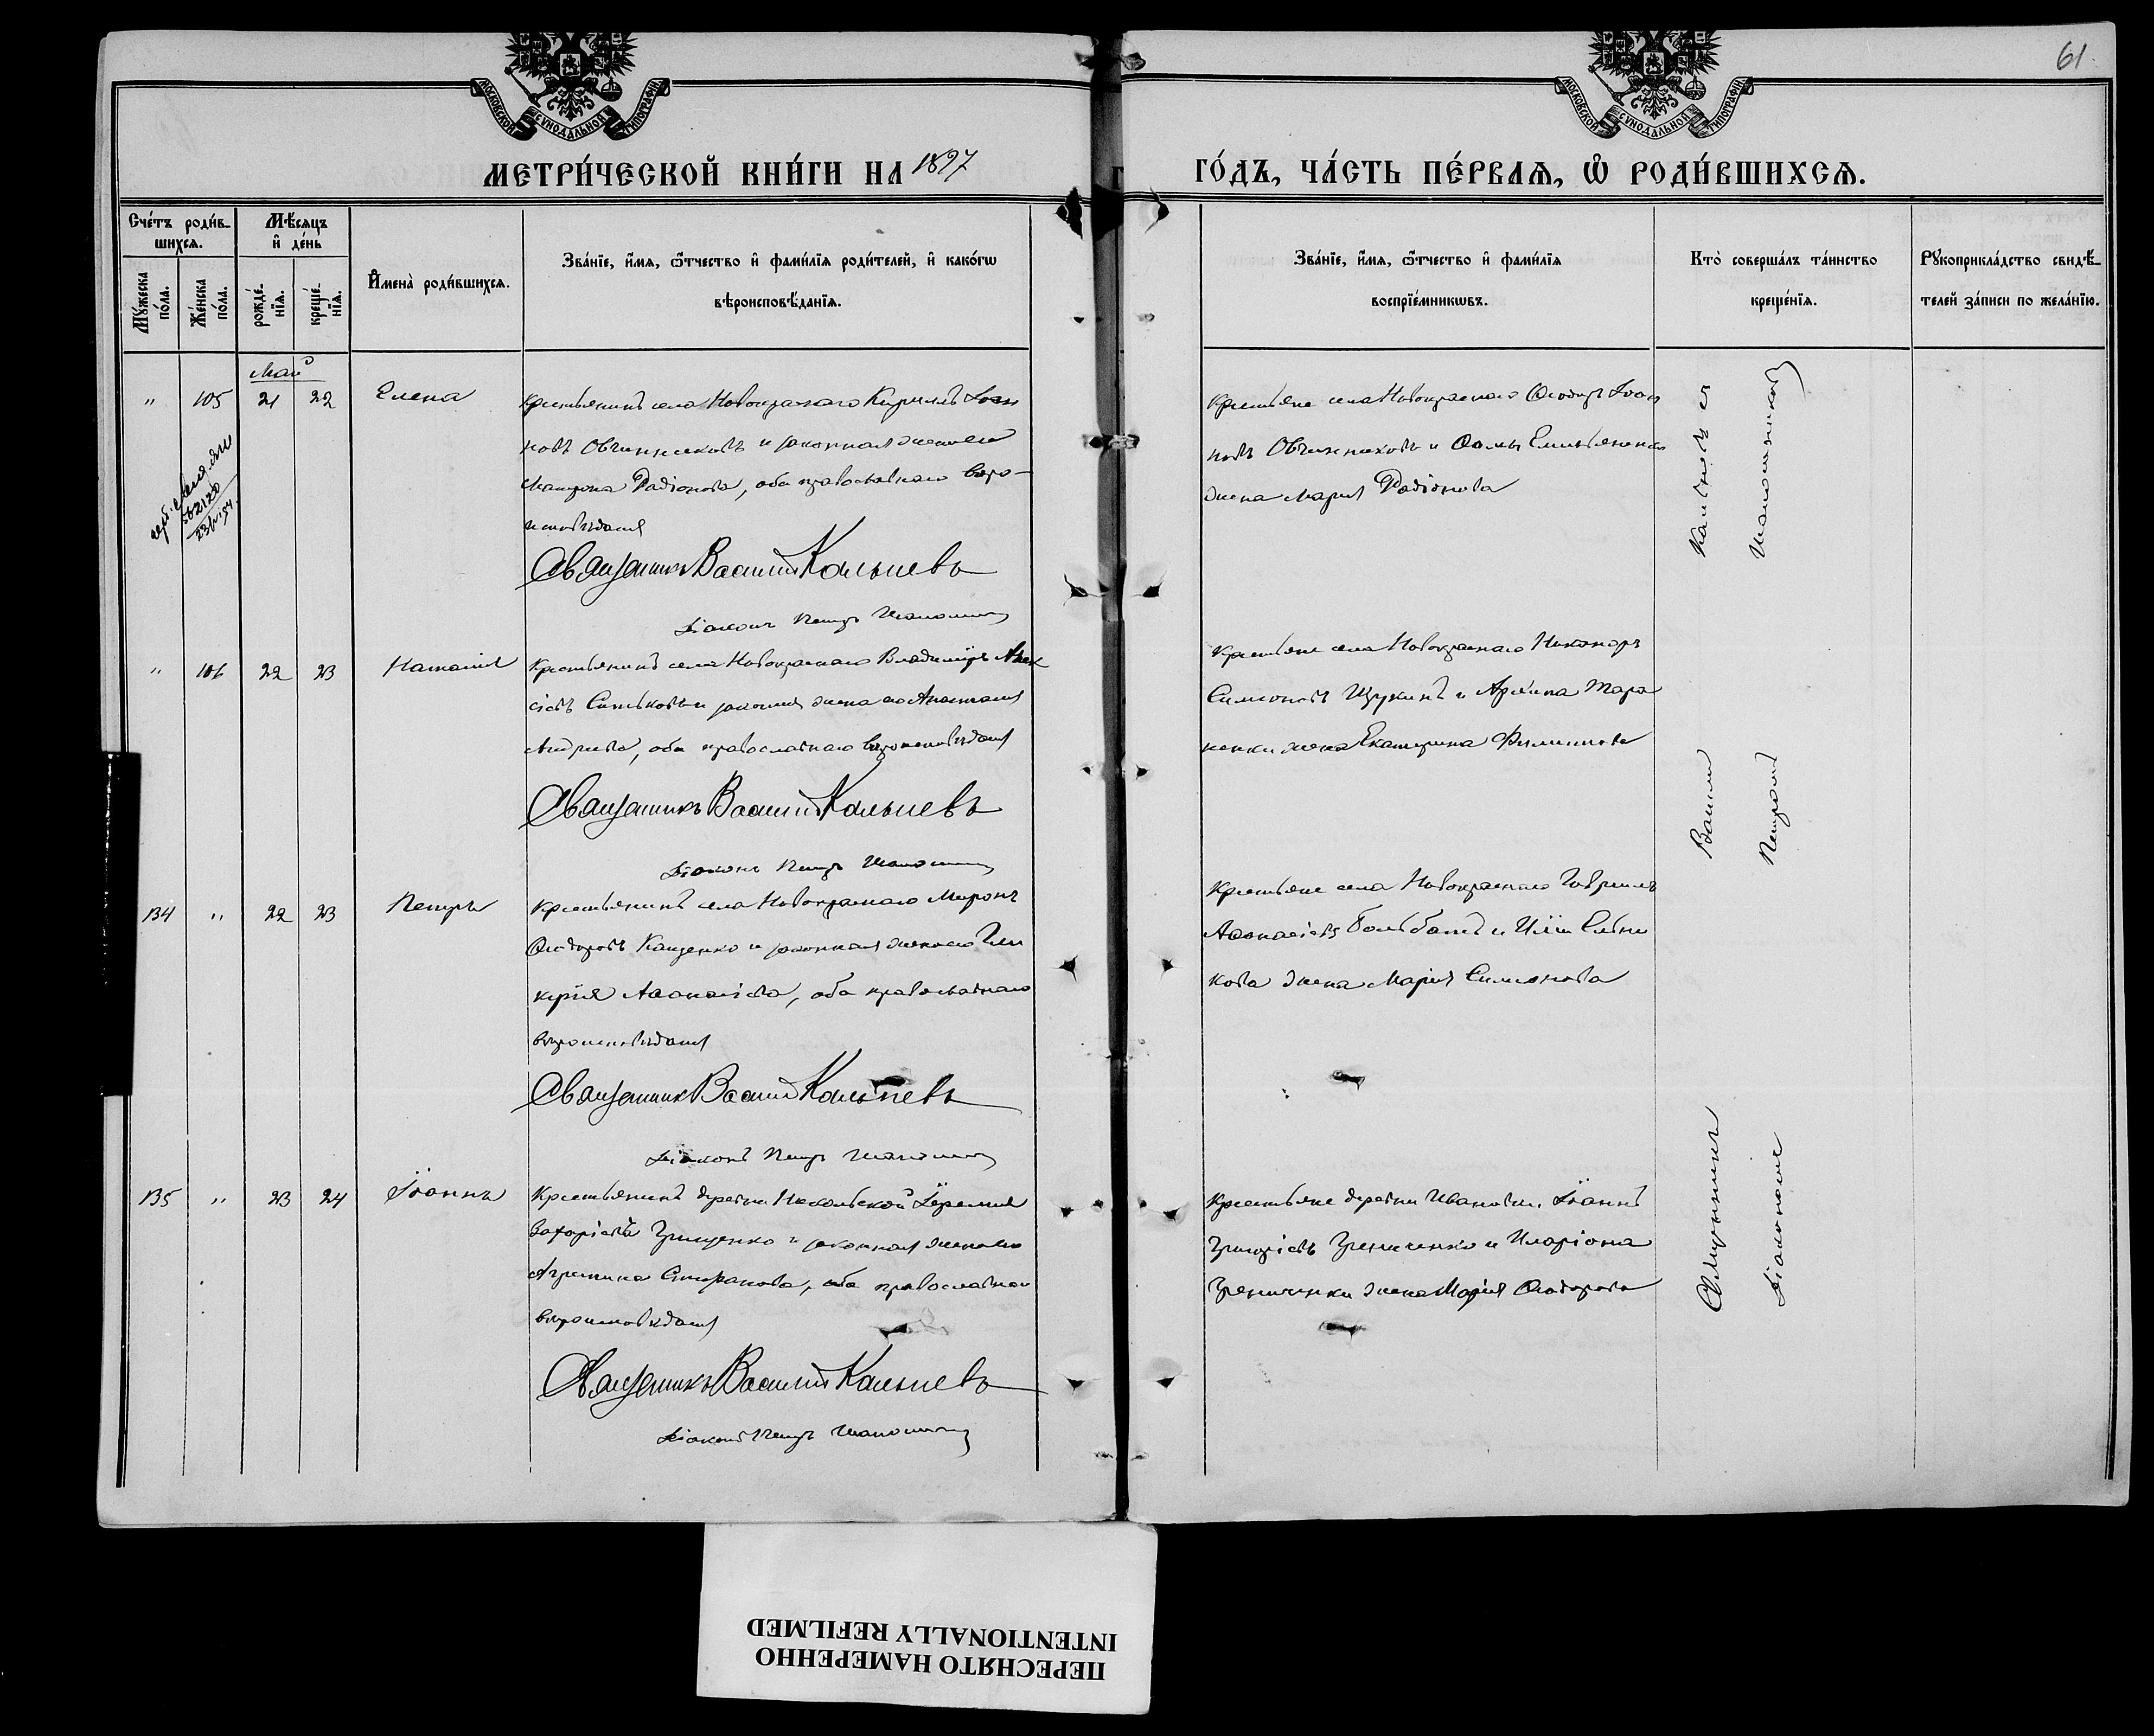 61
МОСКОВСКОЙ СУНОДАЛЬНОЙ ТИПОГРАФІИ
МОСКОВСКОЙ СУНОДАЛЬНОЙ ТИПОГРАФІИ
МЕТРИ́ЧЕСКОЙ КНИ́ГИ НА 1897
ГО́ДЪ, ЧА́СТЬ ПЕ́РВАѦ, Ѿ РОДИ́ВШИХСѦ.
Сче́тъ роди́в-
шихсѧ.
Мѣ́сѧцъ
и҆ де́нь
Мꙋ́жеска
по́ла.
Же́нска
по́ла.
рожде́-
нїѧ.
креще́-
нїѧ.
И҆мена̀ роди́вшихсѧ.
Зва́нїе, и҆́мѧ, ѻ҆́тчество и҆ фами́лїѧ роди́телей, и҆ како́гѡ
вѣроисповѣ́данїѧ.
Зва́нїе, и҆́мѧ, ѻ҆́тчество и҆ фами́лїѧ
воспрїе́мникѡвъ.
Кто̀ соверша́лъ та́инство
креще́нїѧ.
Рꙋкоприкла́дство свидѣ́-
телей за́писи по жела́нїю.
Май
" 105 21 22 Елена
Крестьянинъ села Новокраснаго Кириллъ Іоан
новъ Овчинниковъ и законная жена его
Матрона Радіонова, оба православнаго веро-
исповѣданія
Священникъ Василій Кальневъ
Діаконъ Петръ
Крестьяне села Новокраснаго Ѳеодоръ Іоан
новъ Овчинниковъ и Ѳомы Емельяненка
жена Марія Радіонова
" 106 22 23 Наталія
Крестьянинъ села Новокраснаго Владиміръ Алек
сіевъ Ситьковъ и законная жена его Анастасія
Андреева, оба православнаго вѣроисповѣданія
Священникъ Василій Кальневъ
Діаконъ Петръ
Крестьяне села Новокраснаго Никоноръ
Симоновъ Щукинъ и Архипа Тара
ненки жена Екатерина Филиппова
134 " 22 23 Петръ
Крестьянинъ села Новокраснаго Миронъ
Ѳеодоровъ Кащенко и законная жена его Гли
керія Аѳанасіева, оба православнаго
вѣроисповѣданія
Священникъ Василій Кальневъ
Діаконъ Петръ
Крестьяне села Новокраснаго Гавріилъ
Аѳанасіевъ и Иліи
кова жена Марія Симонова
135 " 23 24 Іоаннъ
Крестьянинъ деревни Никольской Іеремія
Захаріевъ Грищенко и законная жена его
Агрипина Стефанова, оба православнаго
вѣроисповѣданія
Священникъ Василій Кальневъ
Діаконъ Петръ
Крестьяне деревни Ивановки Іоаннъ
Григоріевъ Гречиченко и Иларіона
Гречиченки жена Марія Ѳеодорова
Священникъ Василій Кальневъ съ
Діакономъ Петромъ
ПЕРЕСНЯТО НАМЕРЕННО
INTENTIONALLY REFILMED